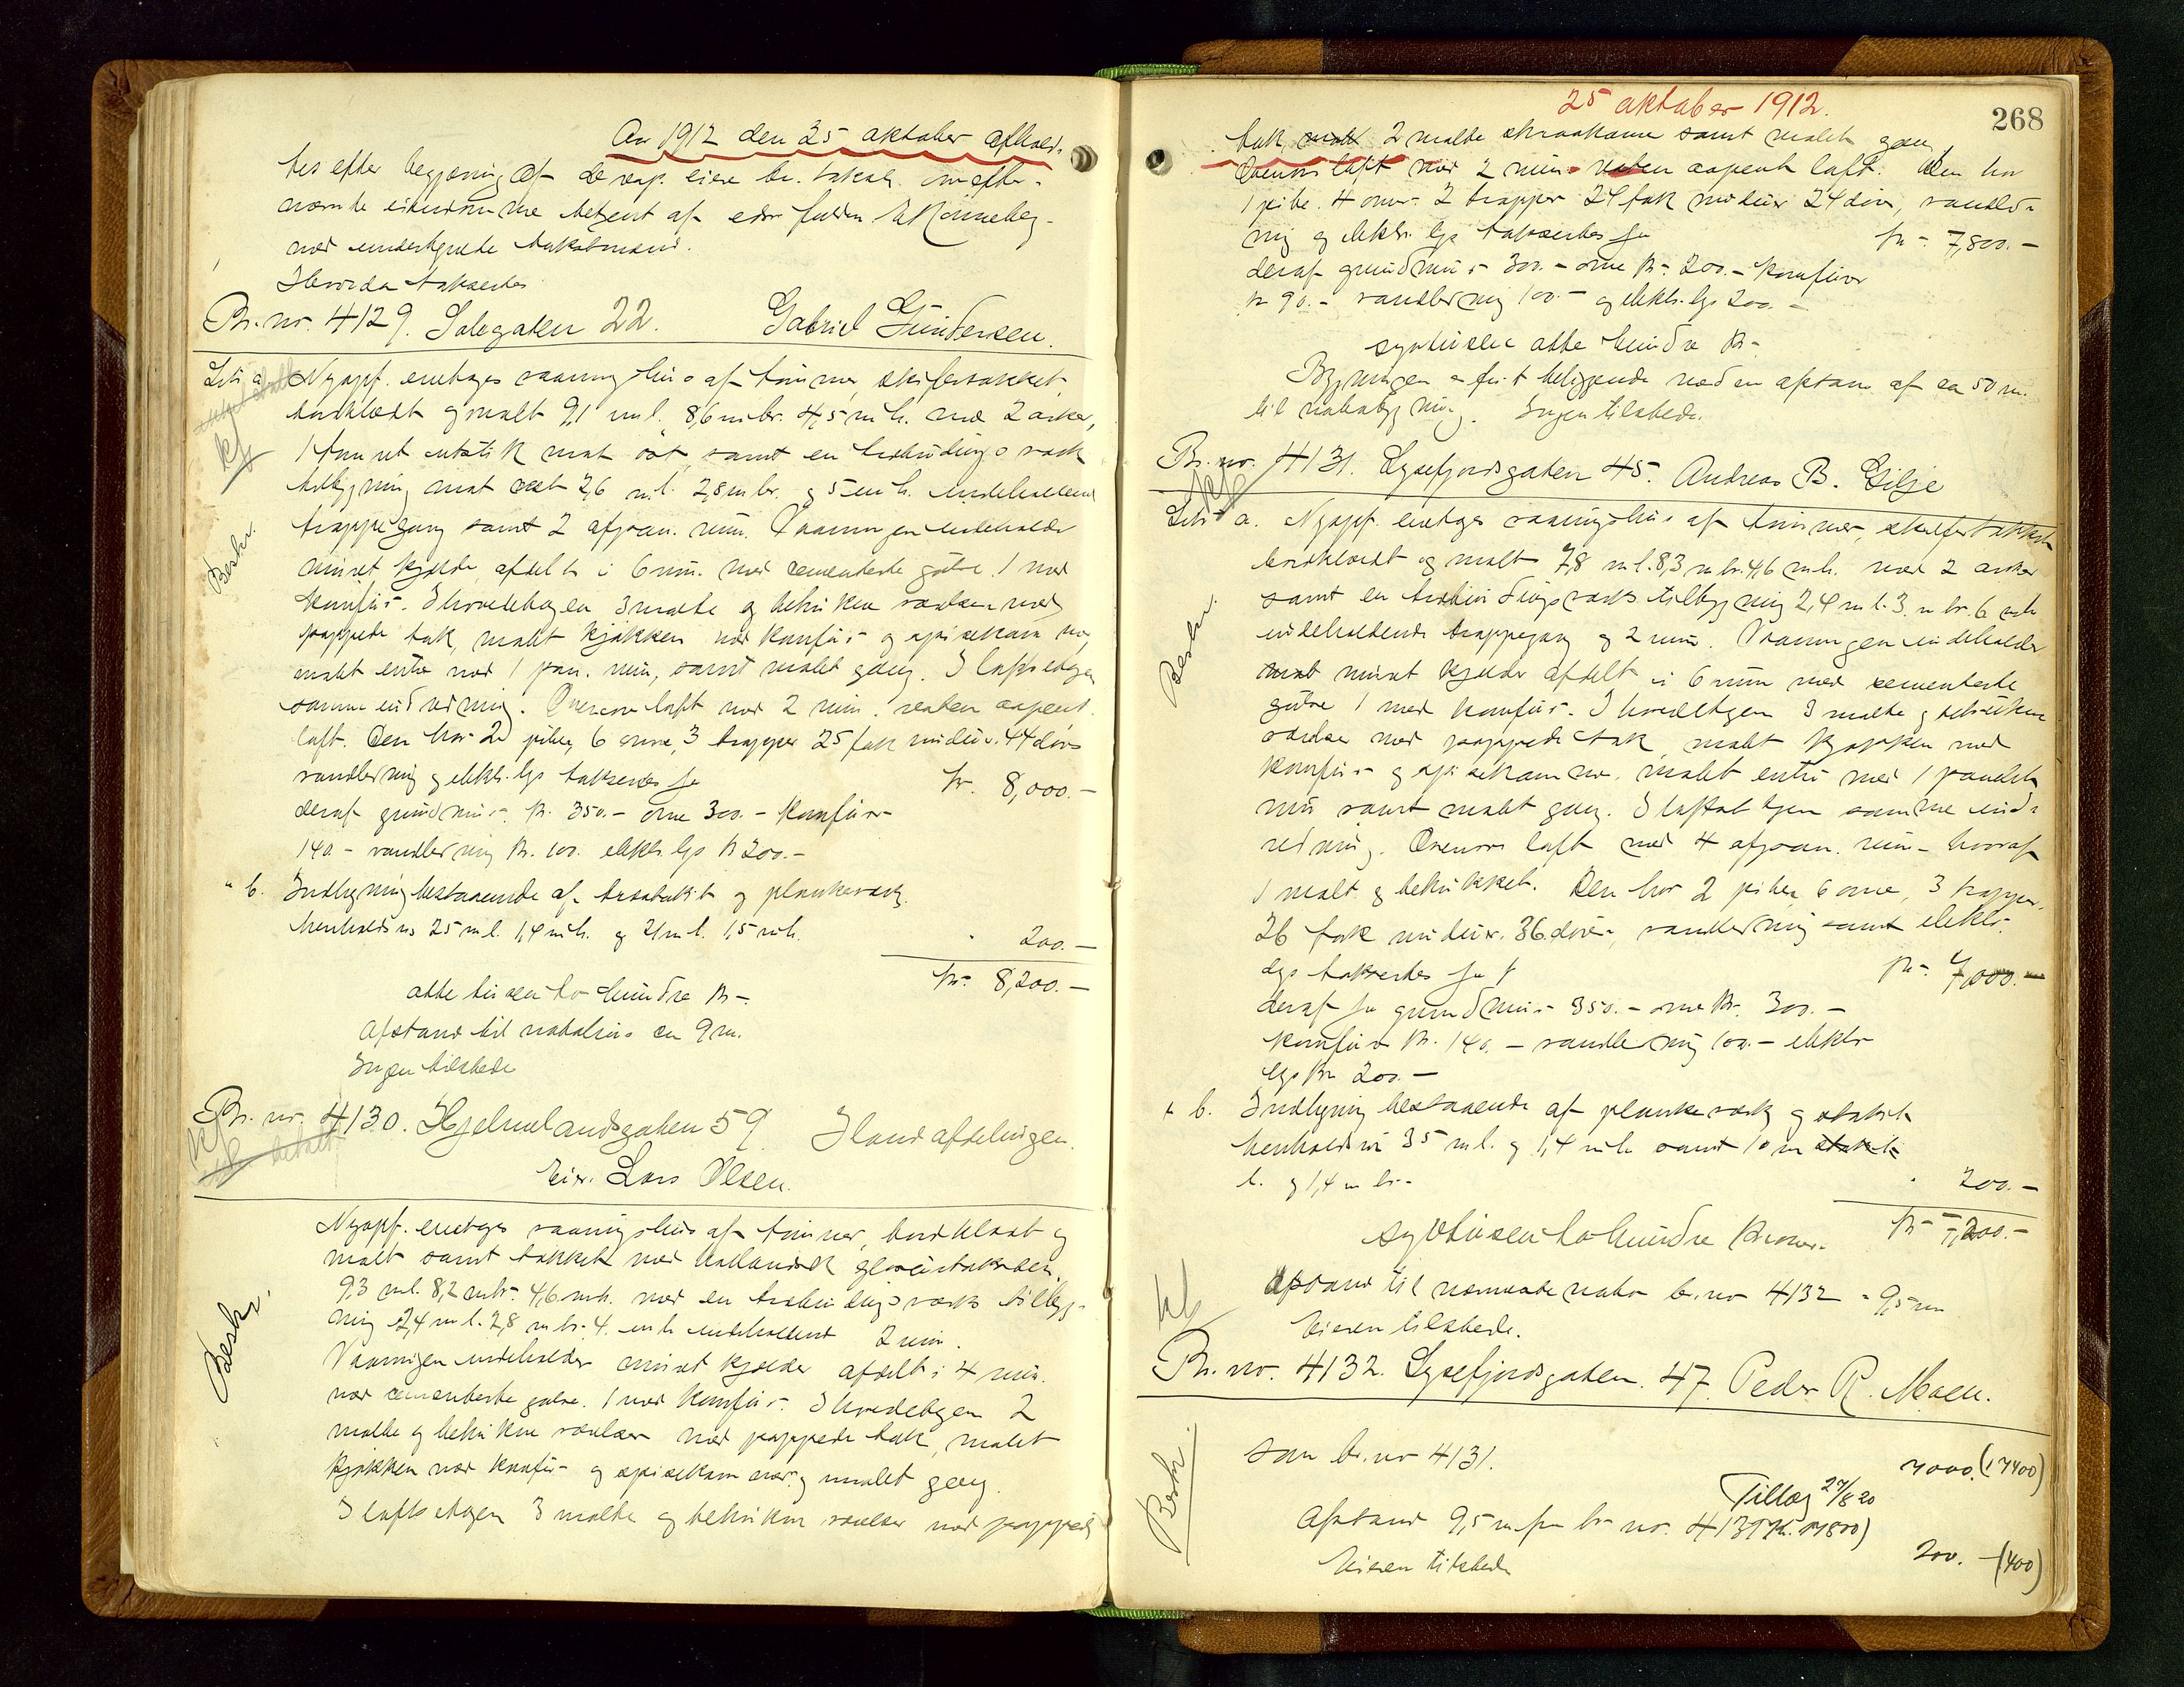 Aar 1912 den 25 oktober afhold-
tes efter begjæring af de resp. eiere br. takst. over efter-
nævnte eiendomme betjent af edsv. fuldm. E Rønneberg
med undertegnede takstmænd.
Hvorda taksertes
Br. no. 4129. Solegaten 22. Gabriel Gundersen.
Litr a Nyopf. enetages vaaningshus af tømmer, skifertækket,
bordklædt og malt 9,1 m l. 8,6 m br. 4,5 m h. med 2 arker,
1 tømret utstik mot øst samt en utbindingsverk
tilbygning mot vest 2,6 m l. 2,8 m br. og 5 m h. indeholdende
trappegang samt 2 afpan. rum. Vaaningen indeholder
muret kjelder afdelt i 6 rum. med cementerte gulve. 1 med
komfur. I hovedetagen 3 malte og betrukne værelser med
pappede tak, malet kjøkken med komfur og spisekammer,
malet entre med 1 pan. rum, samt malet gang. I loftsetagen
samme indredning. Ovenover loft med 2 rum. resten aapent
loft. Den har 2 piber, 6 ovne, 3 trapper 25 fak vinduer. 44 døre
vandledning og elektr. lys takseres for kr. 8,000.-
deraf grundmur kr. 350.- ovne 300.- komfurer
140.- vandledning kr. 100. elektr. lys kr 200.-
" b. Indhegning bestaaende af brostakit og plankeværk
henholdsvis 25 m l. 1,4 m h. og 21 m l. 1,5 m h. 200.-
kr. 8,200.-
otte tusen to hundre kr.
Afstand til nabohus ca 9 m.
Ingen tilstede
Br. no. 4130. Hjelmelandsgaten 59. I landafdelingen.
Eier. Lars Olsen.
Nyopf. enetages vaaningshus af tømmer, bordklædt og
malt samt tækket med hollandsk glasurtaksten.
9,3 m l. 8,2 m br. 4,6 m h. med en utbindingsverks tilbyg-
ning 2,4 m l. 2,8 m br. 4. m h. indeholdende 2 rum.
Vaaningen indeholder muret kjelder afdelt i 4 rum.
med cementerte gulve. 1 med komfur. I hovedetagen 2
malte og betrukne værelser med pappede tak, malet
kjøkken med komfur og spisekammer og malet gang.
I loftsetagen 3 malte og betrukne værelser med pappede
Beskr.
Beskr.
25 oktober 1912.
268
tak, 2 malte skraakamre samt malet gang,
Ovenover loft med 2 rum resten aapent loft. Den har
1 pibe. 4 ovner 2 trapper 24 fak vinduer 24 døre, vandled-
ning og elektr. lys takseres for kr. 7,800.-
deraf grundmur 300.- ovne kr. 200.- komfurer
kr 90.- vandledning 100.- og elektr. lys 200.-
syvtusen otte hundre kr.
Bygningen er frit beliggende med en afstand af ca 50 m.
til nabobygning. Ingen tilstede.
Br. no. 4131. Lysefjordsgaten 45. Andreas B. Lilje
Litr a. Nyopf. enetages vaaningshus af tømmer, skifertækket
bordklædt og malt 7,8 m l. 8,3 m br. 4,6 m h. med 2 arker
samt en utbindingsverks tilbygning 2,4 m l. 3 m br. 6 m h
indeholdende trappegang og 2 rum. Vaaningen indeholder
muret kjelder afdelt i 6 rum med cementerte
gulve 1 med komfur. I hovedetagen 3 malte og betrukne
værelser med pappede tak, malet kjøkken med
komfur og spisekammer, malet entre med 1 panelet
rum samt malet gang. I loftsetagen samme ind-
redning. Ovenover loft med 4 afpan. rum hvoraf
1 malt og betrukket. Den har 2 piber 6 ovne, 3 trapper,
26 fak vinduer. 36 døre, vandledning samt elektr.
lys takseres for kr. 7,000.-
deraf for grundmur 350.- ovne kr. 300.-
komfur kr. 140.- vandledning 100.- elektr
lys kr 200.-
" b. Indhegning bestaaende af plankeværk og stakit
henholdsvis 35 m l. og 1,4 m h samt 10 m
l. og 1,4 m br. 200.-
syvtusen to hundre kroner. kr 7,200.-
Afstand til nærmeste nabo br. no 4132 = 9,5 m
Eieren tilstede.
Br. no. 4132. Lysefjordsgaten. 47. Peder R. Moen.
som br. no 4131. 7000. (17400)
Tillæg 27/8 20
Afstand 9,5 m fra br no. 4131 (kr. 17800)
200.- (400)
Eieren tilstede
Beskr.
Beskr.